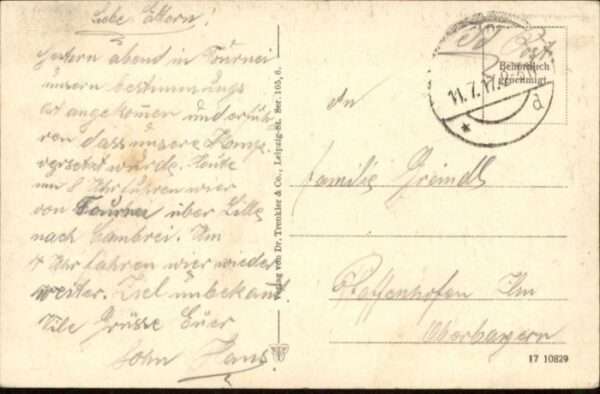 Liebe Eltern!
Gestern abend in Tournei
unsern bestimmungs
ort angekommen und erfuh
ren dass unsere Komp.
versetzt wurde. Heute
um 8 Uhr fuhren wier
von Tournei über Lille
nach Cambrei. Um
4 Uhr fahren wier wieder
weiter. Ziel unbekand
Vile Grüsse Euer
Sohn Hans
Verlag von Dr. Trenkler & Co., Leipzig-St. Ser. 105, 8.
Feld Post
Behördlich
genehmigt
11.7.17.
d
An
Familie Greindl
Pfaffenhofen Ilm
Oberbayern
17 10829